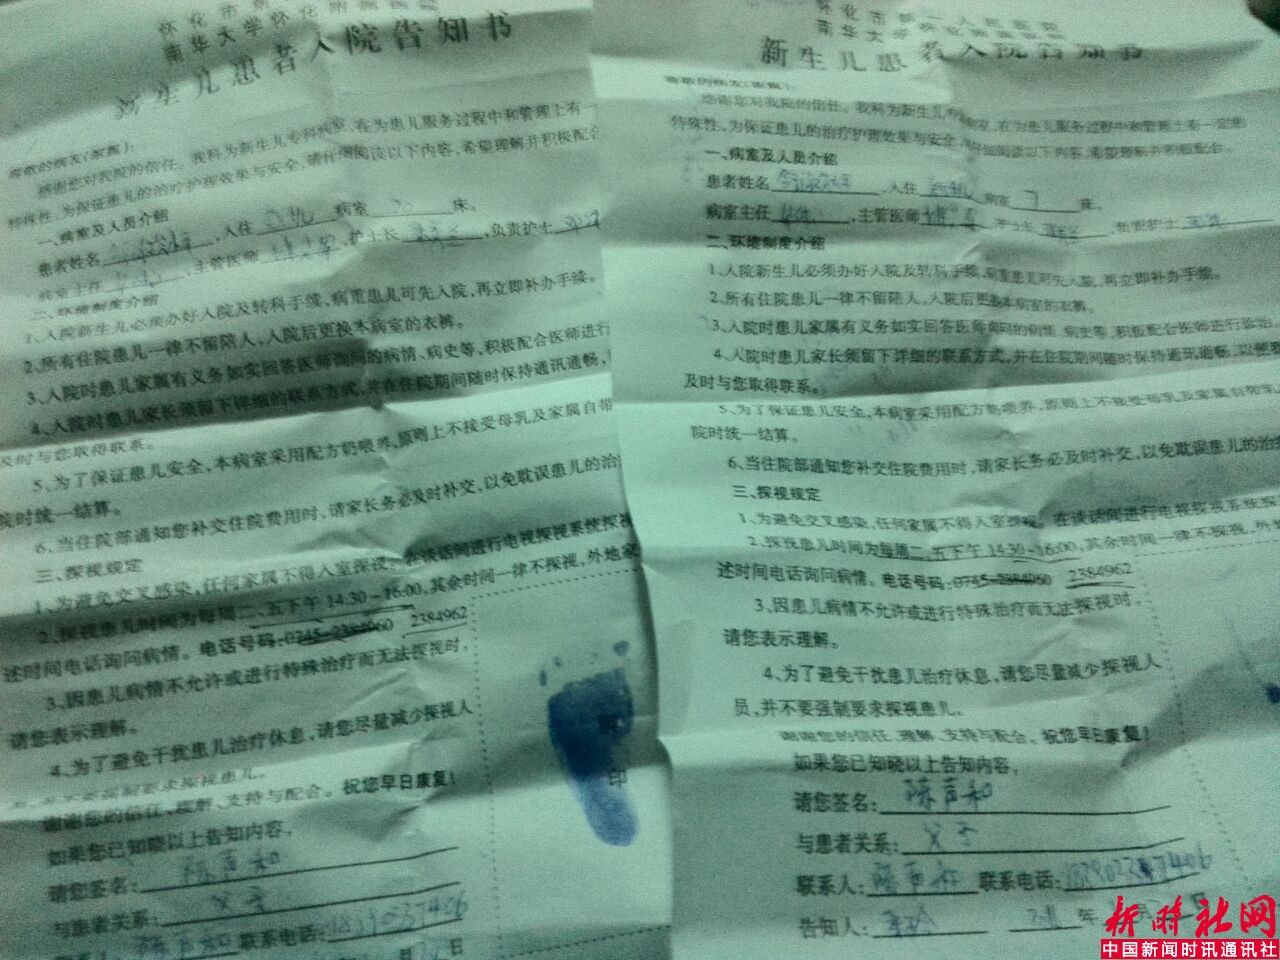 南华大学怀化附属医院
新生儿患者入院告知书
尊敬的病友(家属):
感谢您对我院的信任。我科为新生儿专科病室,在为患儿服务过程中和管理上有一
特殊性,为保证患儿的治疗护理效果与安全,请仔细阅读以下内容,希望理解并积极配合
一、病室及人员介绍
患者姓名 ,入住 病室 床。
病室主任 ,主管医师 ,护士长 ,负责护士
二、环境制度介绍
1、入院新生儿必须办好入院及转科手续,病重患儿可先入院,再立即补办手续。
2、所有住院患儿一律不留陪人,入院后更换本病室的衣裤。
3、入院时患儿家属有义务如实回答医师询问的病情、病史等,积极配合医师进行
4、入院时患儿家长须留下详细的联系方式,并在住院期间随时保持通讯通畅,
及时与您取得联系。
5、为了保证患儿安全,本病室采用配方奶喂养,原则上不接受母乳及家属自带
院时统一结算。
6、当住院部通知您补交住院费用时,请家长务必及时补交,以免耽误患儿的治
三、探视规定
1、为避免交叉感染,任何家属不得入室探视。在谈话间进行电视探视系统探视
2、探视患儿时间为每周二、五下午 14:30-16:00,其余时间一律不探视,外地家
述时间电话询问病情。电话号码:0745-2384960 2384962
3、因患儿病情不允许或进行特殊治疗而无法探视时,
请您表示理解。
4、为了避免干扰患儿治疗休息,请您尽量减少探视人
员,并不要强制要求探视患儿。
谢谢您的信任、理解、支持与配合。祝您早日康复!
如果您已知晓以上告知内容,
请您签名: 陈声和
与患者关系: 父子
陈声和 联系电话: 18390237406
月 日
印
怀化市第一人民医院
南华大学怀化附属医院
新生儿患者入院告知书
尊敬的病友(家属):
感谢您对我院的信任。我科为新生儿专科病室,在为患儿服务过程中和管理上有一定的
特殊性,为保证患儿的治疗护理效果与安全,请仔细阅读以下内容,希望理解并积极配合。
一、病室及人员介绍
患者姓名 ,入住 病室 7 床。
病室主任 ,主管医师 ,护士长 ,负责护士
二、环境制度介绍
1、入院新生儿必须办好入院及转科手续,病重患儿可先入院,再立即补办手续。
2、所有住院患儿一律不留陪人,入院后更换本病室的衣裤。
3、入院时患儿家属有义务如实回答医师询问的病情、病史等,积极配合医师进行诊治
4、入院时患儿家长须留下详细的联系方式,并在住院期间随时保持通讯通畅,以便
及时与您取得联系。
5、为了保证患儿安全,本病室采用配方奶喂养,原则上不接受母乳及家属自带
院时统一结算。
6、当住院部通知您补交住院费用时,请家长务必及时补交,以免耽误患儿的治
三、探视规定
1、为避免交叉感染,任何家属不得入室探视。在谈话间进行电视探视系统探
2、探视患儿时间为每周二、五下午 14:30-16:00,其余时间一律不探视,外
述时间电话询问病情。电话号码:0745-2384960 2384962
3、因患儿病情不允许或进行特殊治疗而无法探视时,
请您表示理解。
4、为了避免干扰患儿治疗休息,请您尽量减少探视人
员,并不要强制要求探视患儿。
谢谢您的信任、理解、支持与配合。祝您早日康复!
如果您已知晓以上告知内容,
请您签名: 陈声和
与患者关系: 父子
联系人: 陈声和 联系电话: 18390237406
告知人: 年 月 日
新时社网
中国新闻时讯通讯社